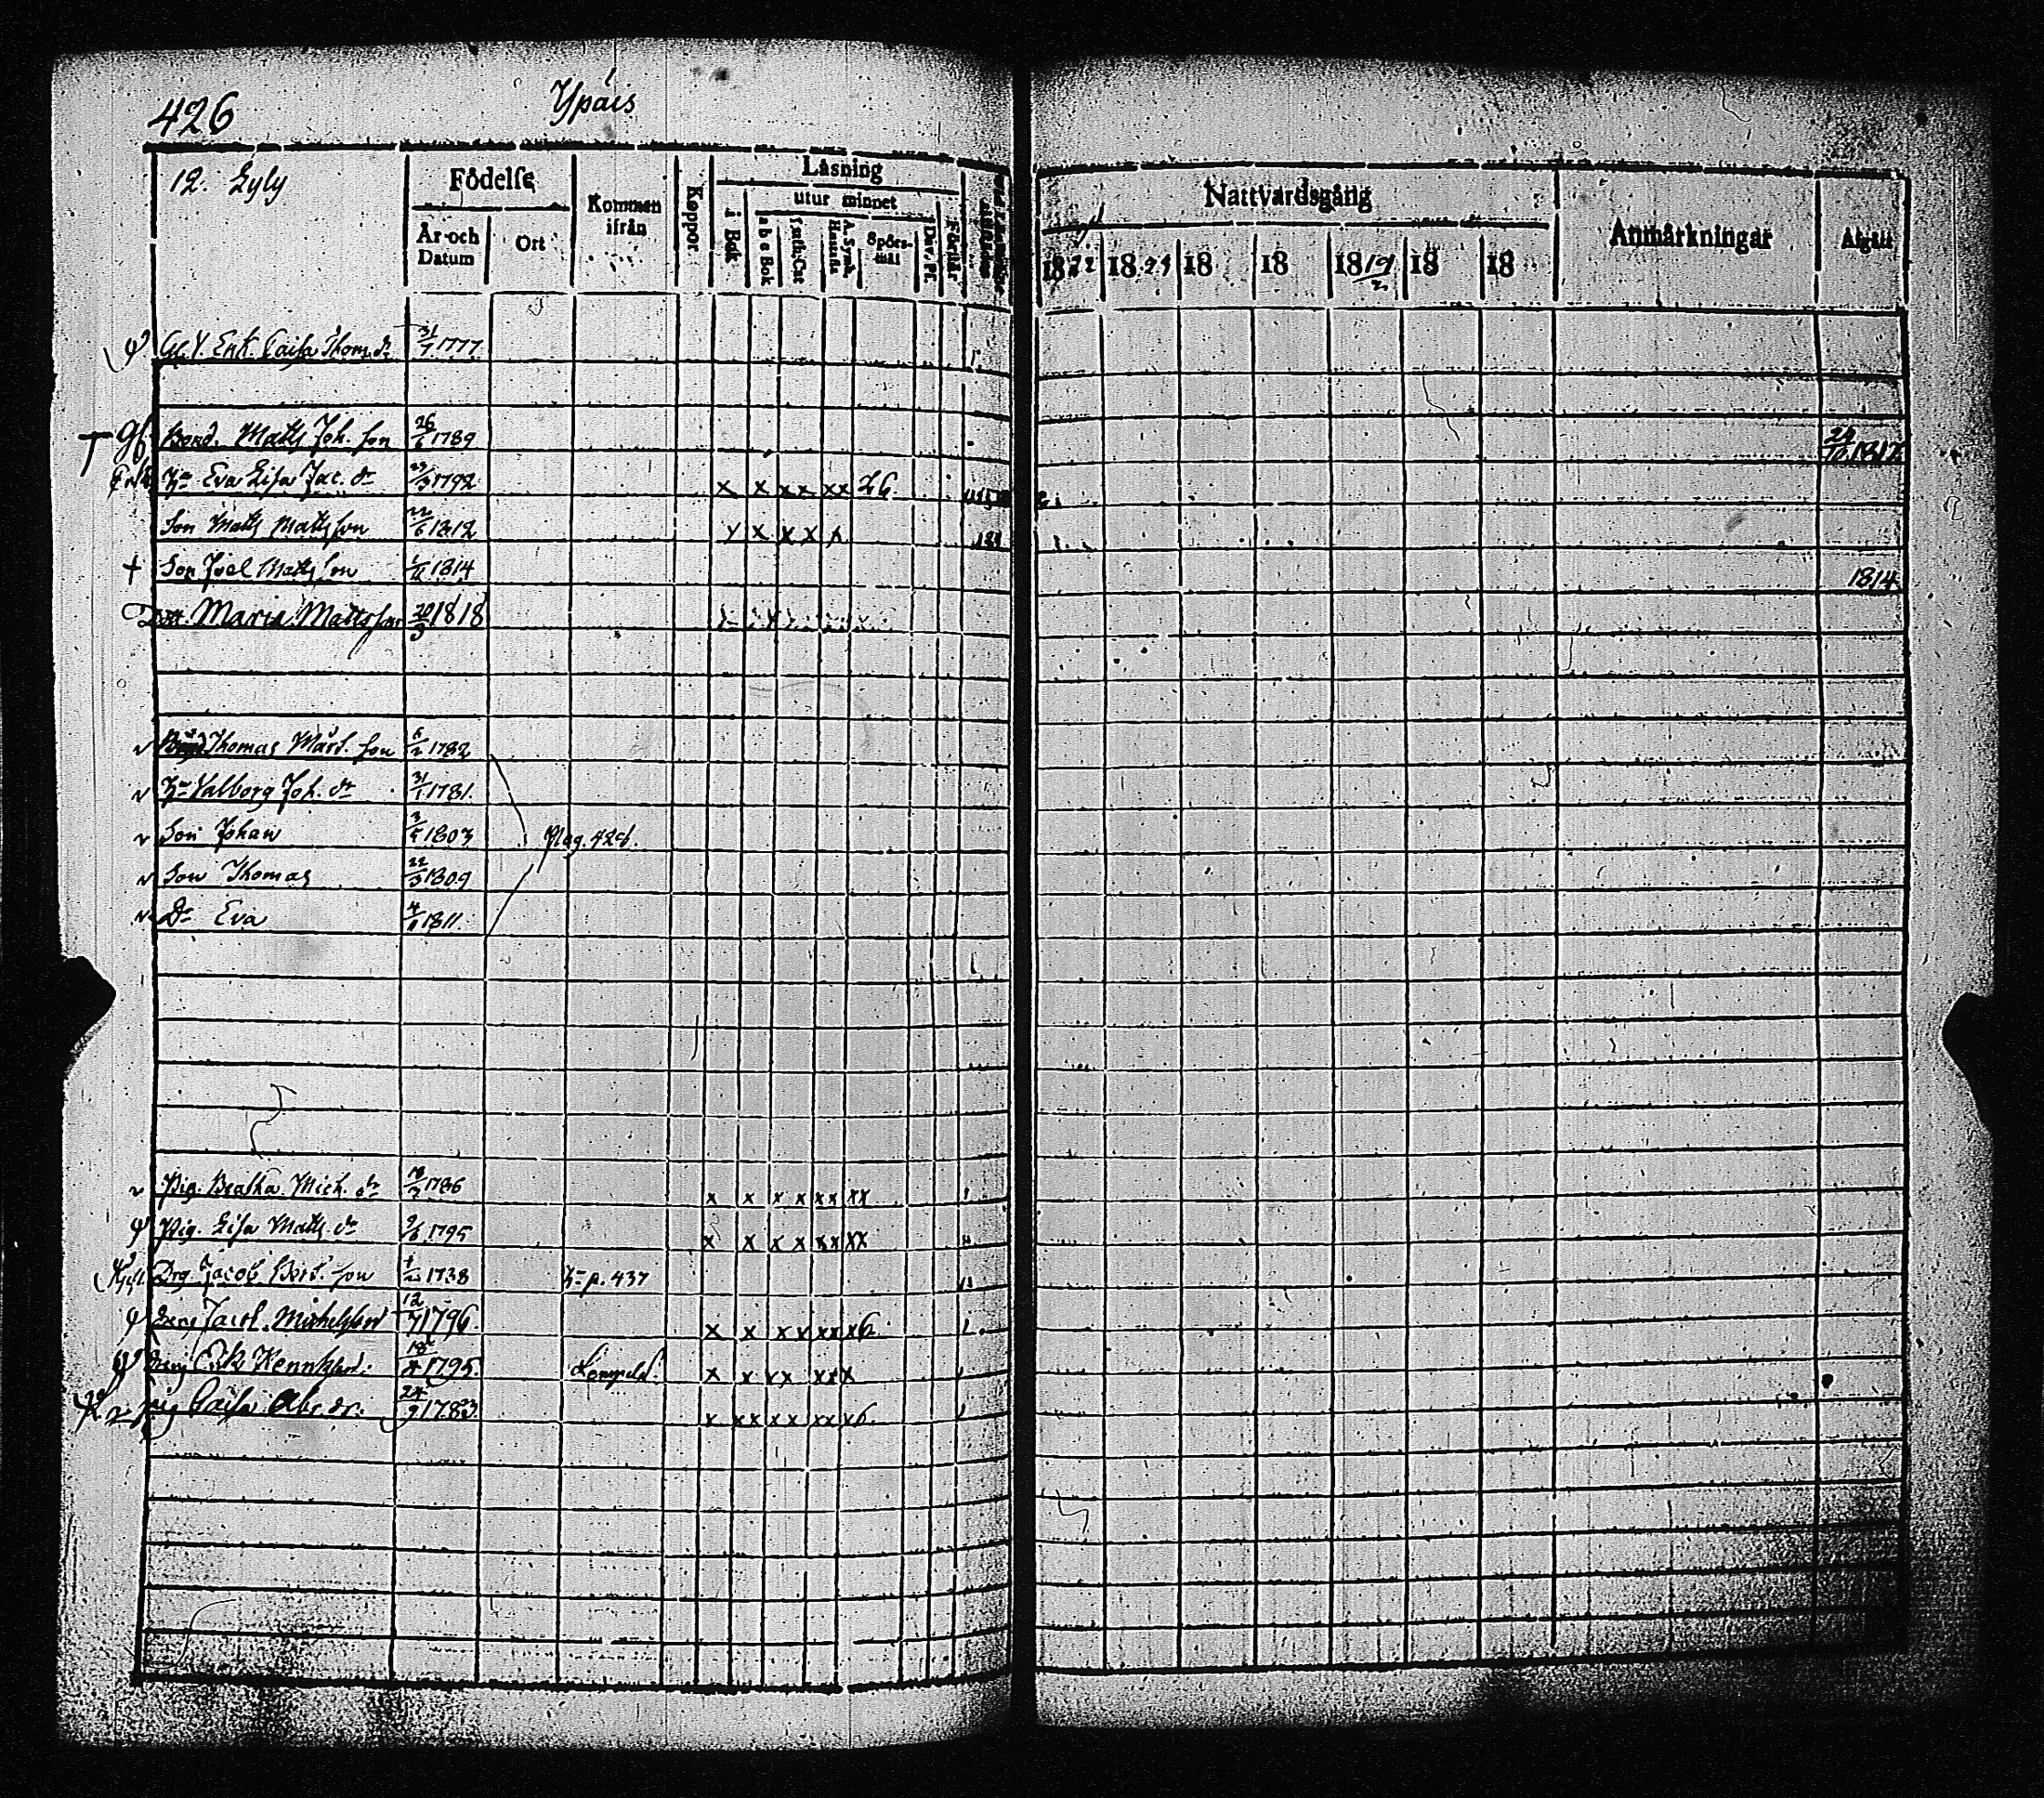 426
Ypäis
12. Lyly
Födelse
År och Datum
Ort
Kommen ifrån
Koppor
Läsning
i Bok
utur minnet
a b c Bok
Luth: Cat
A. Symb. Hustafla
Spörsmål
Dav. Ps.
Förstår
Nattvardsgång
1822 1824 18 18 1819 18 18
Anmärkningar
Afgått
Enk. Caisa Thom. dr 31/7 1777
† Bond. Matts Joh. son 26/6 1789 1817
Enk. Hu Eva Lisa Jac. dr 23/3 1792 x x x x x x
Son Matts Matts son 22/6 1812 x x x x
† Son Joel Matts son 1814 1814
Dott. Maria Matts 20/3 1818
Thomas Mårt. son 6/2 1782
Hu Valborg Joh. dr 31/1 1781
Son Johan 3/5 1803 Pag. 428.
Son Thomas 22/3 1809
Dr Eva 4/11 1811.
Pig. Beatha Mich. dr 1786 x x x x x x x x
Pig. Lisa Matts dr 9/6 1795 x x x x x x x x
Drg Jacob son 1738 p. 437
Dreng Jacob Michelsson 12/7 1796 x x x x x x x 6
Dreng Erik 18 1795 x x x x x x x
Pig Caisa Abr. dr. 24/9 1783 x x x x x x x x 6